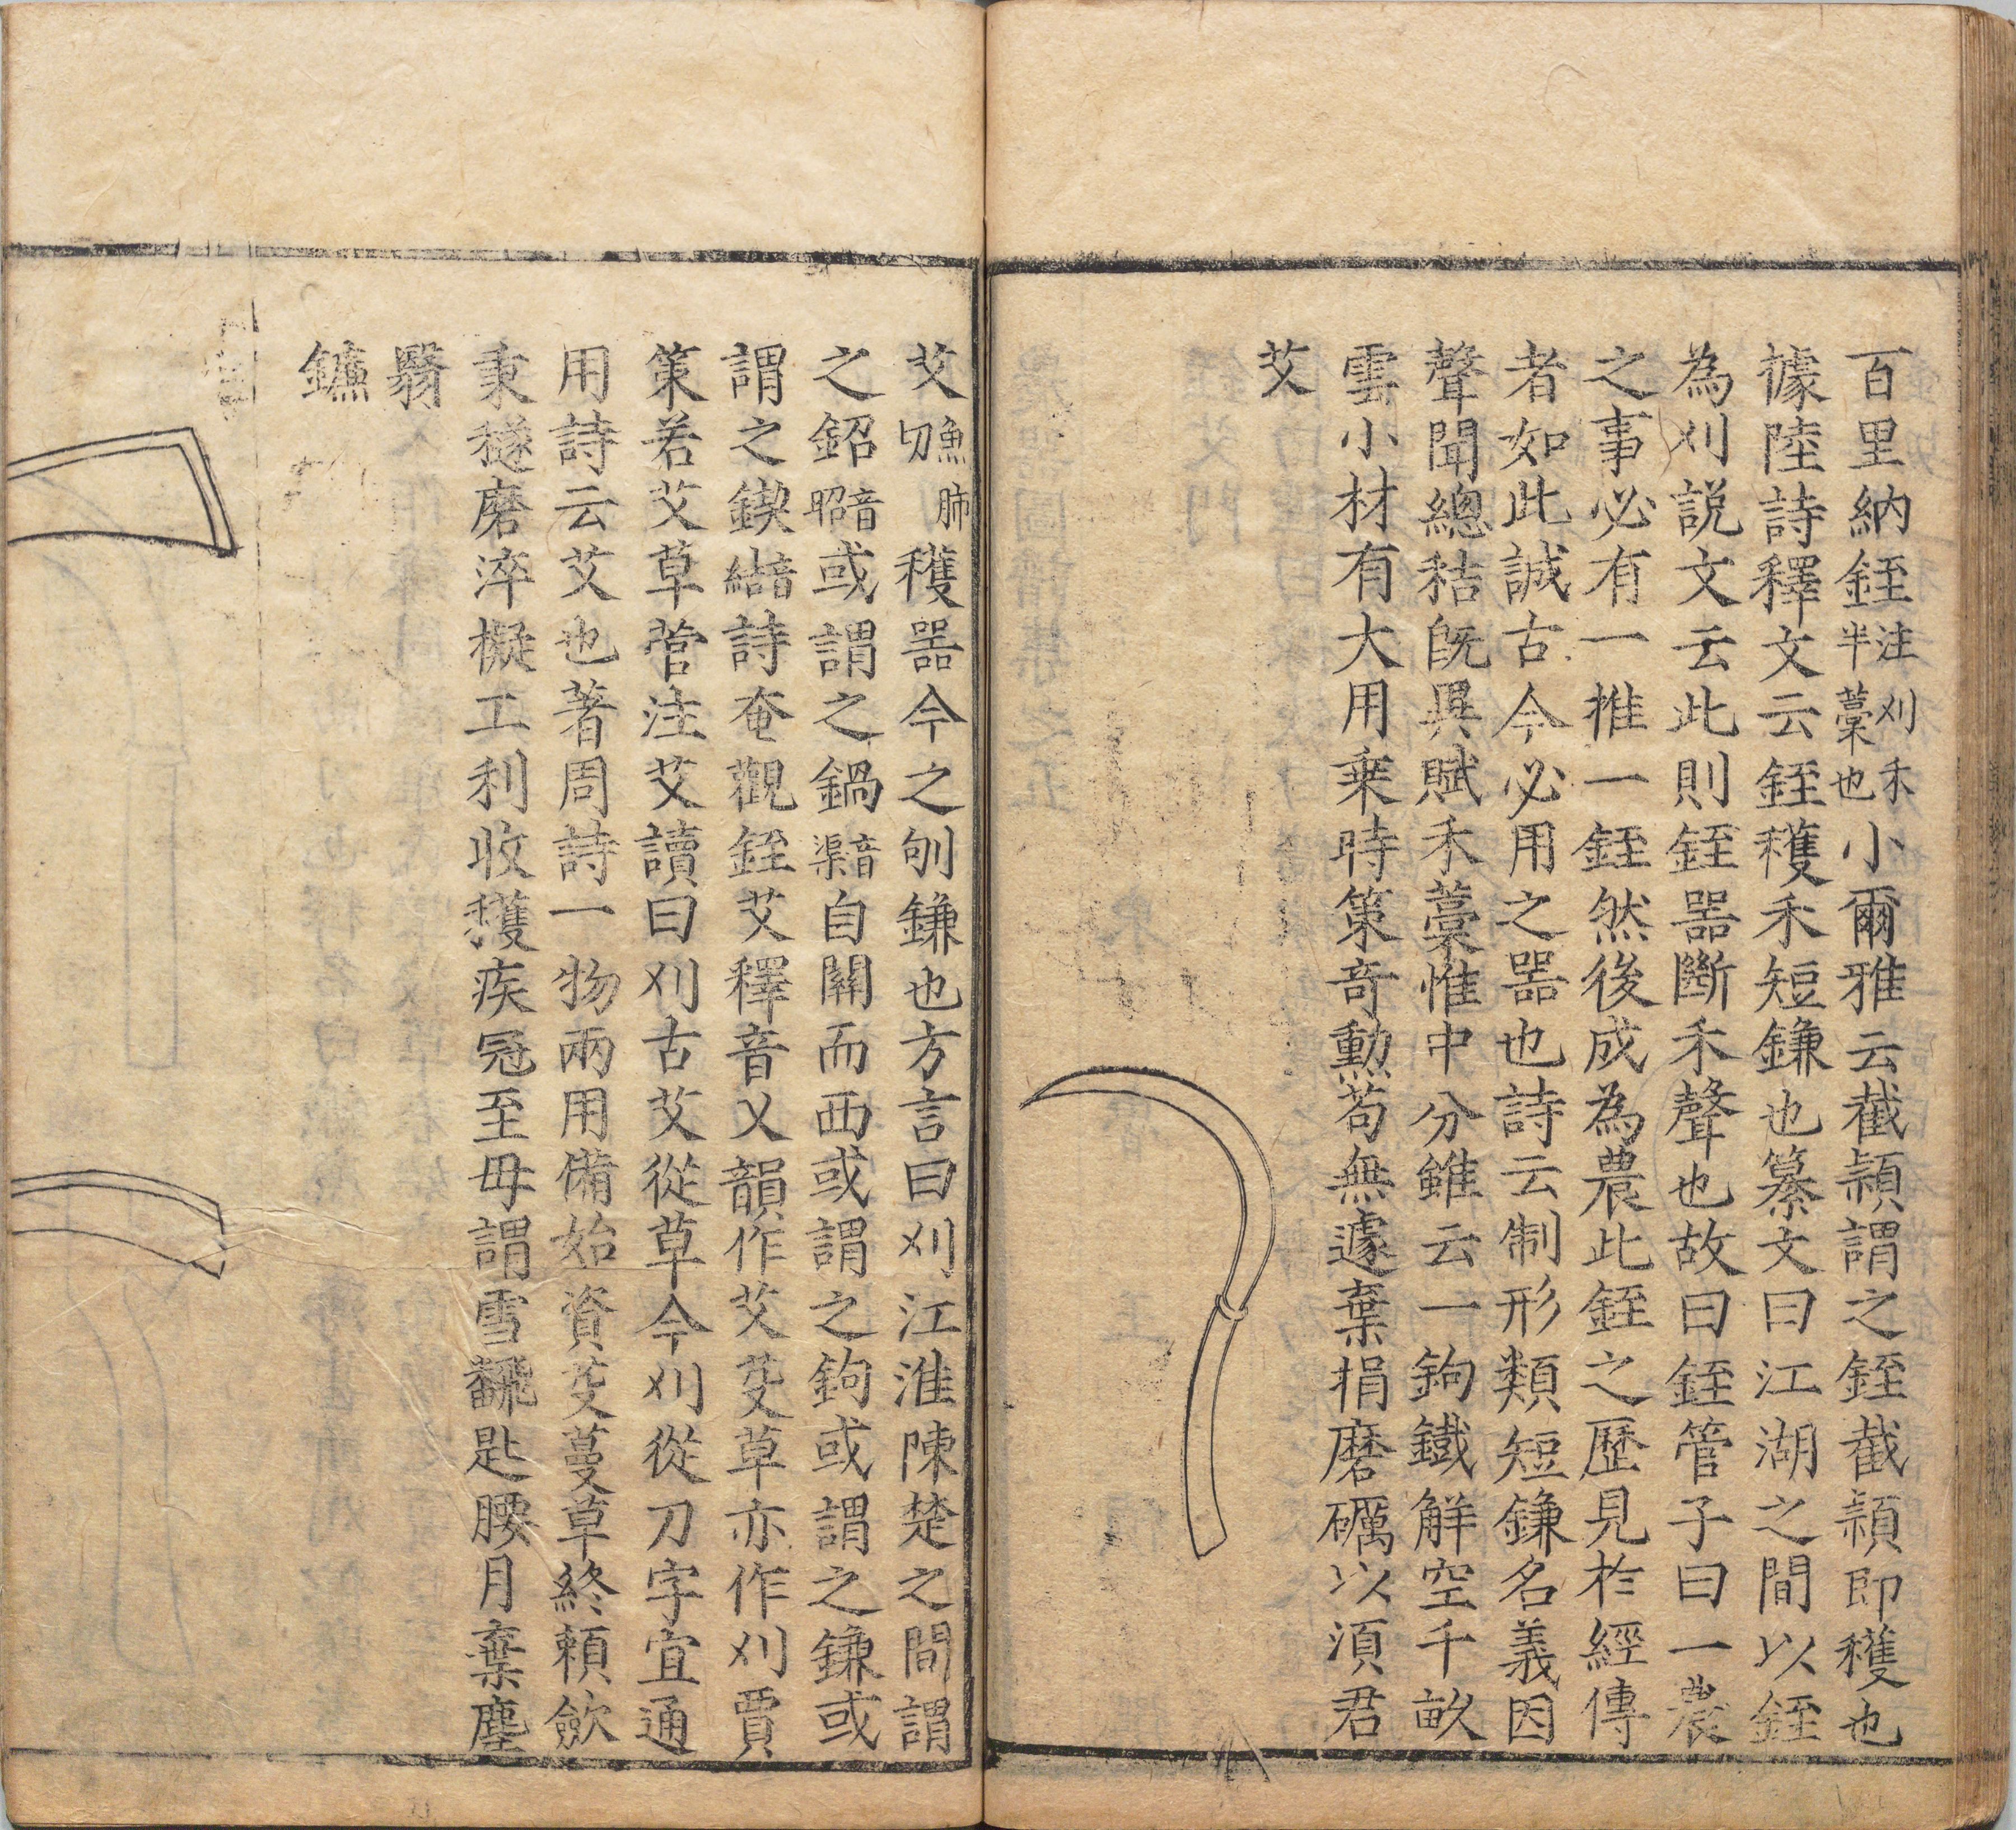 百里納銍注刈禾半藁也小爾雅云截穎謂之銍截穎即穫也
據陸詩釋文云銍穫禾短鎌也纂文曰江湖之間以銍
為刈説文云此則銍器斷禾聲也故曰銍管子曰一農
之事必有一推一銍然後成為農此銍之歷見於經傳
者如此誠古今必用之器也詩云制形類短鎌名義因
聲聞總秸旣異賦禾藁惟中分雖云一鉤鐵解空千畝
雲小材有大用乗時策奇勳茍無遽棄捐磨礪以須君
艾
艾魚肺切穫器今之刨鎌也方言曰刈江淮陳楚之間謂
之鉊音昭或謂之鍋音渠自關而西或謂之鉤或謂之鎌或
謂之鍥音結詩奄觀銍艾釋音乂韻作艾芟草亦作刈賈
策若艾草菅注艾讀曰刈古艾從草今刈從刀字宜通
用詩云艾也著周詩一物兩用備始資芟蔓草終賴斂
秉穟磨淬擬工利收穫疾冦至毋謂雪翻匙腰月棄塵
翳
鐮